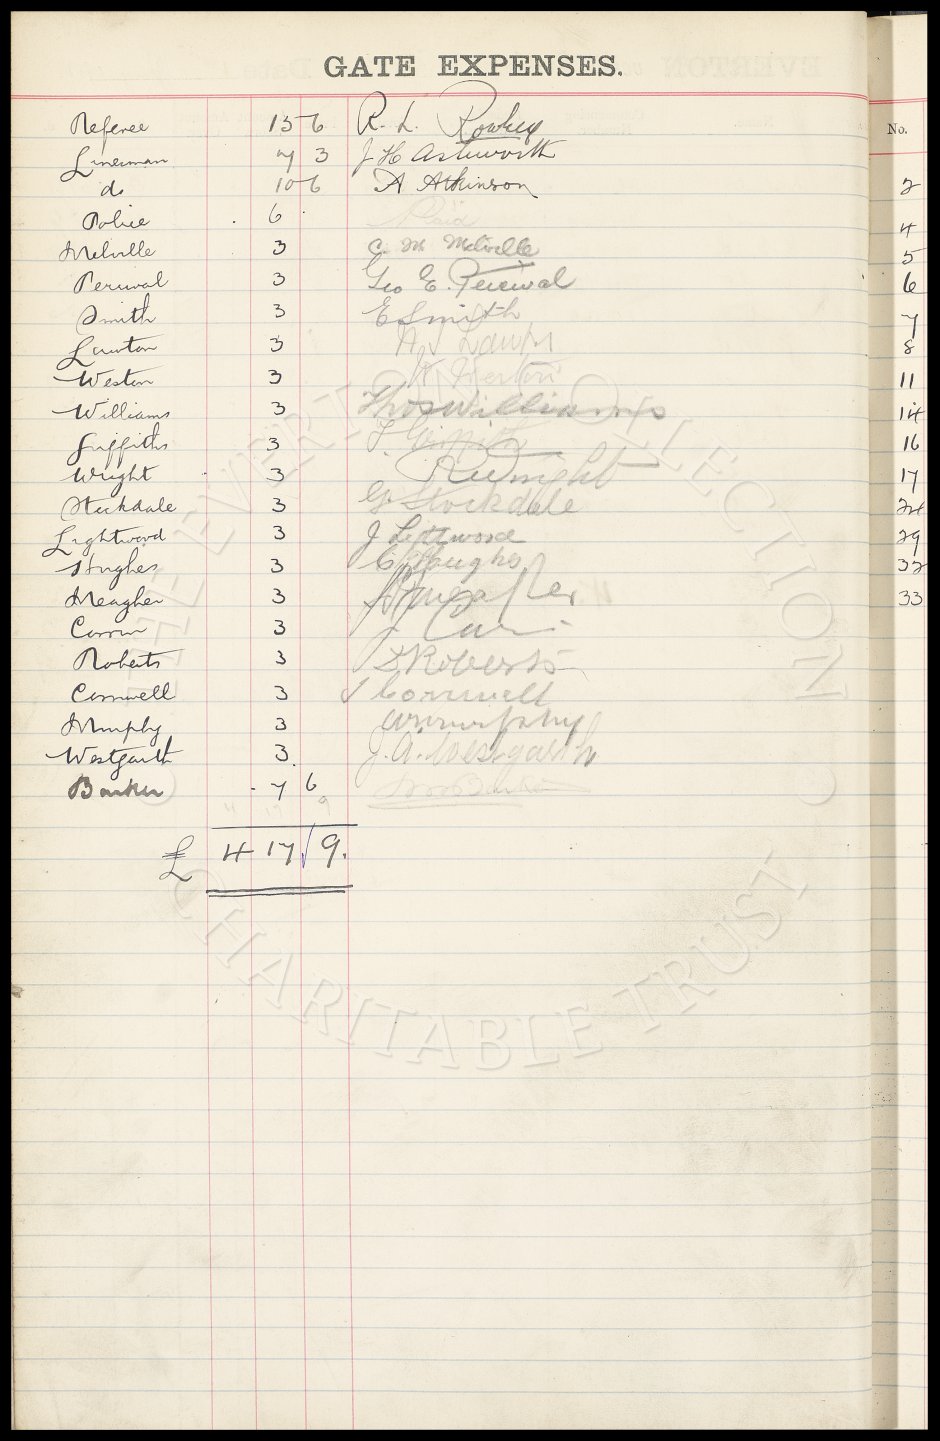 GATE EXPENSES.
Referee 15 6 R. L. Rowley
Linesman 7 3 J H Ashworth
do 10 6 A Atkinson
Police 6 Paid
Melville 3 C. M Melville
Percival 3 Geo E. Percival
Smith 3 E Smith
Lawton 3
Weston 3 W Weston
Williams 3 Thos Williams
Griffiths 3
Wright 3 R Wright
Stockdale 3 G Stockdale
Lightwood 3 J
Hughes 3 C Hughes
Meagher 3
3
Roberts 3 Roberts
Cornwell 3 J Cornwell
Murphy 3 Murphy
Westgarth 3 J. A. Westgarth
Barker 7 6 Barker
4 17 9
£ 4 17 9.
No.
2
4
5
6
7
8
11
14
16
17
24
29
32
33
THE EVERTON COLLECTION
CHARITABLE TRUST